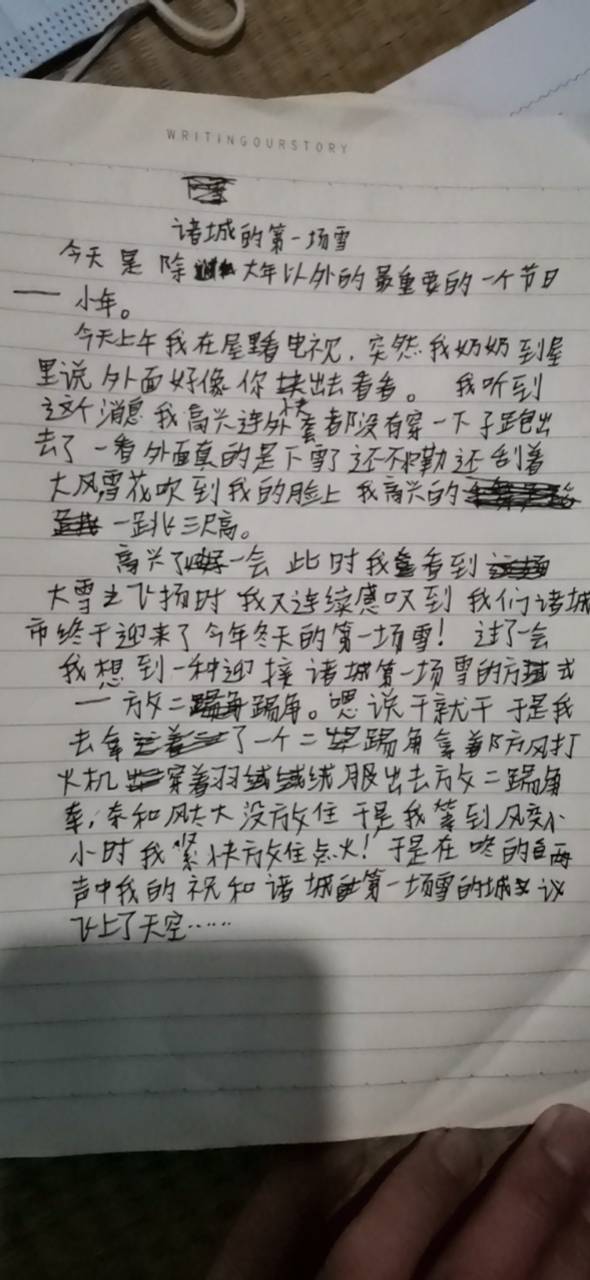 WRITINGOURSTORY
诸城的第一场雪
今天是除大年以外的最重要的一个节日
——小年。
今天上午我在屋里看电视，突然我奶奶到屋
里说外面好像你快出去看看。我听到
这个消息我高兴连外套都没有穿一下子跑出
去了一看外面真的是下雪了还不勤还刮着
大风雪花吹到我的脸上我高兴的
一跳三尺高。
高兴了一会此时我看到
大雪之飞扬时我又连续感叹到我们诸城
市终于迎来了今年冬天的第一场雪！过了一会
我想到一种迎接诸城第一场雪的方式
—放二踢角。嗯说干就干于是我
去拿了一个二踢角拿着防风打
火机穿着羽绒服出去放二踢角
奈和风太大没放住于是我等到风变小
小时我紧快放住点火！于是在咚的两
声中我的祝和诸城第一场雪的议
飞上了天空……